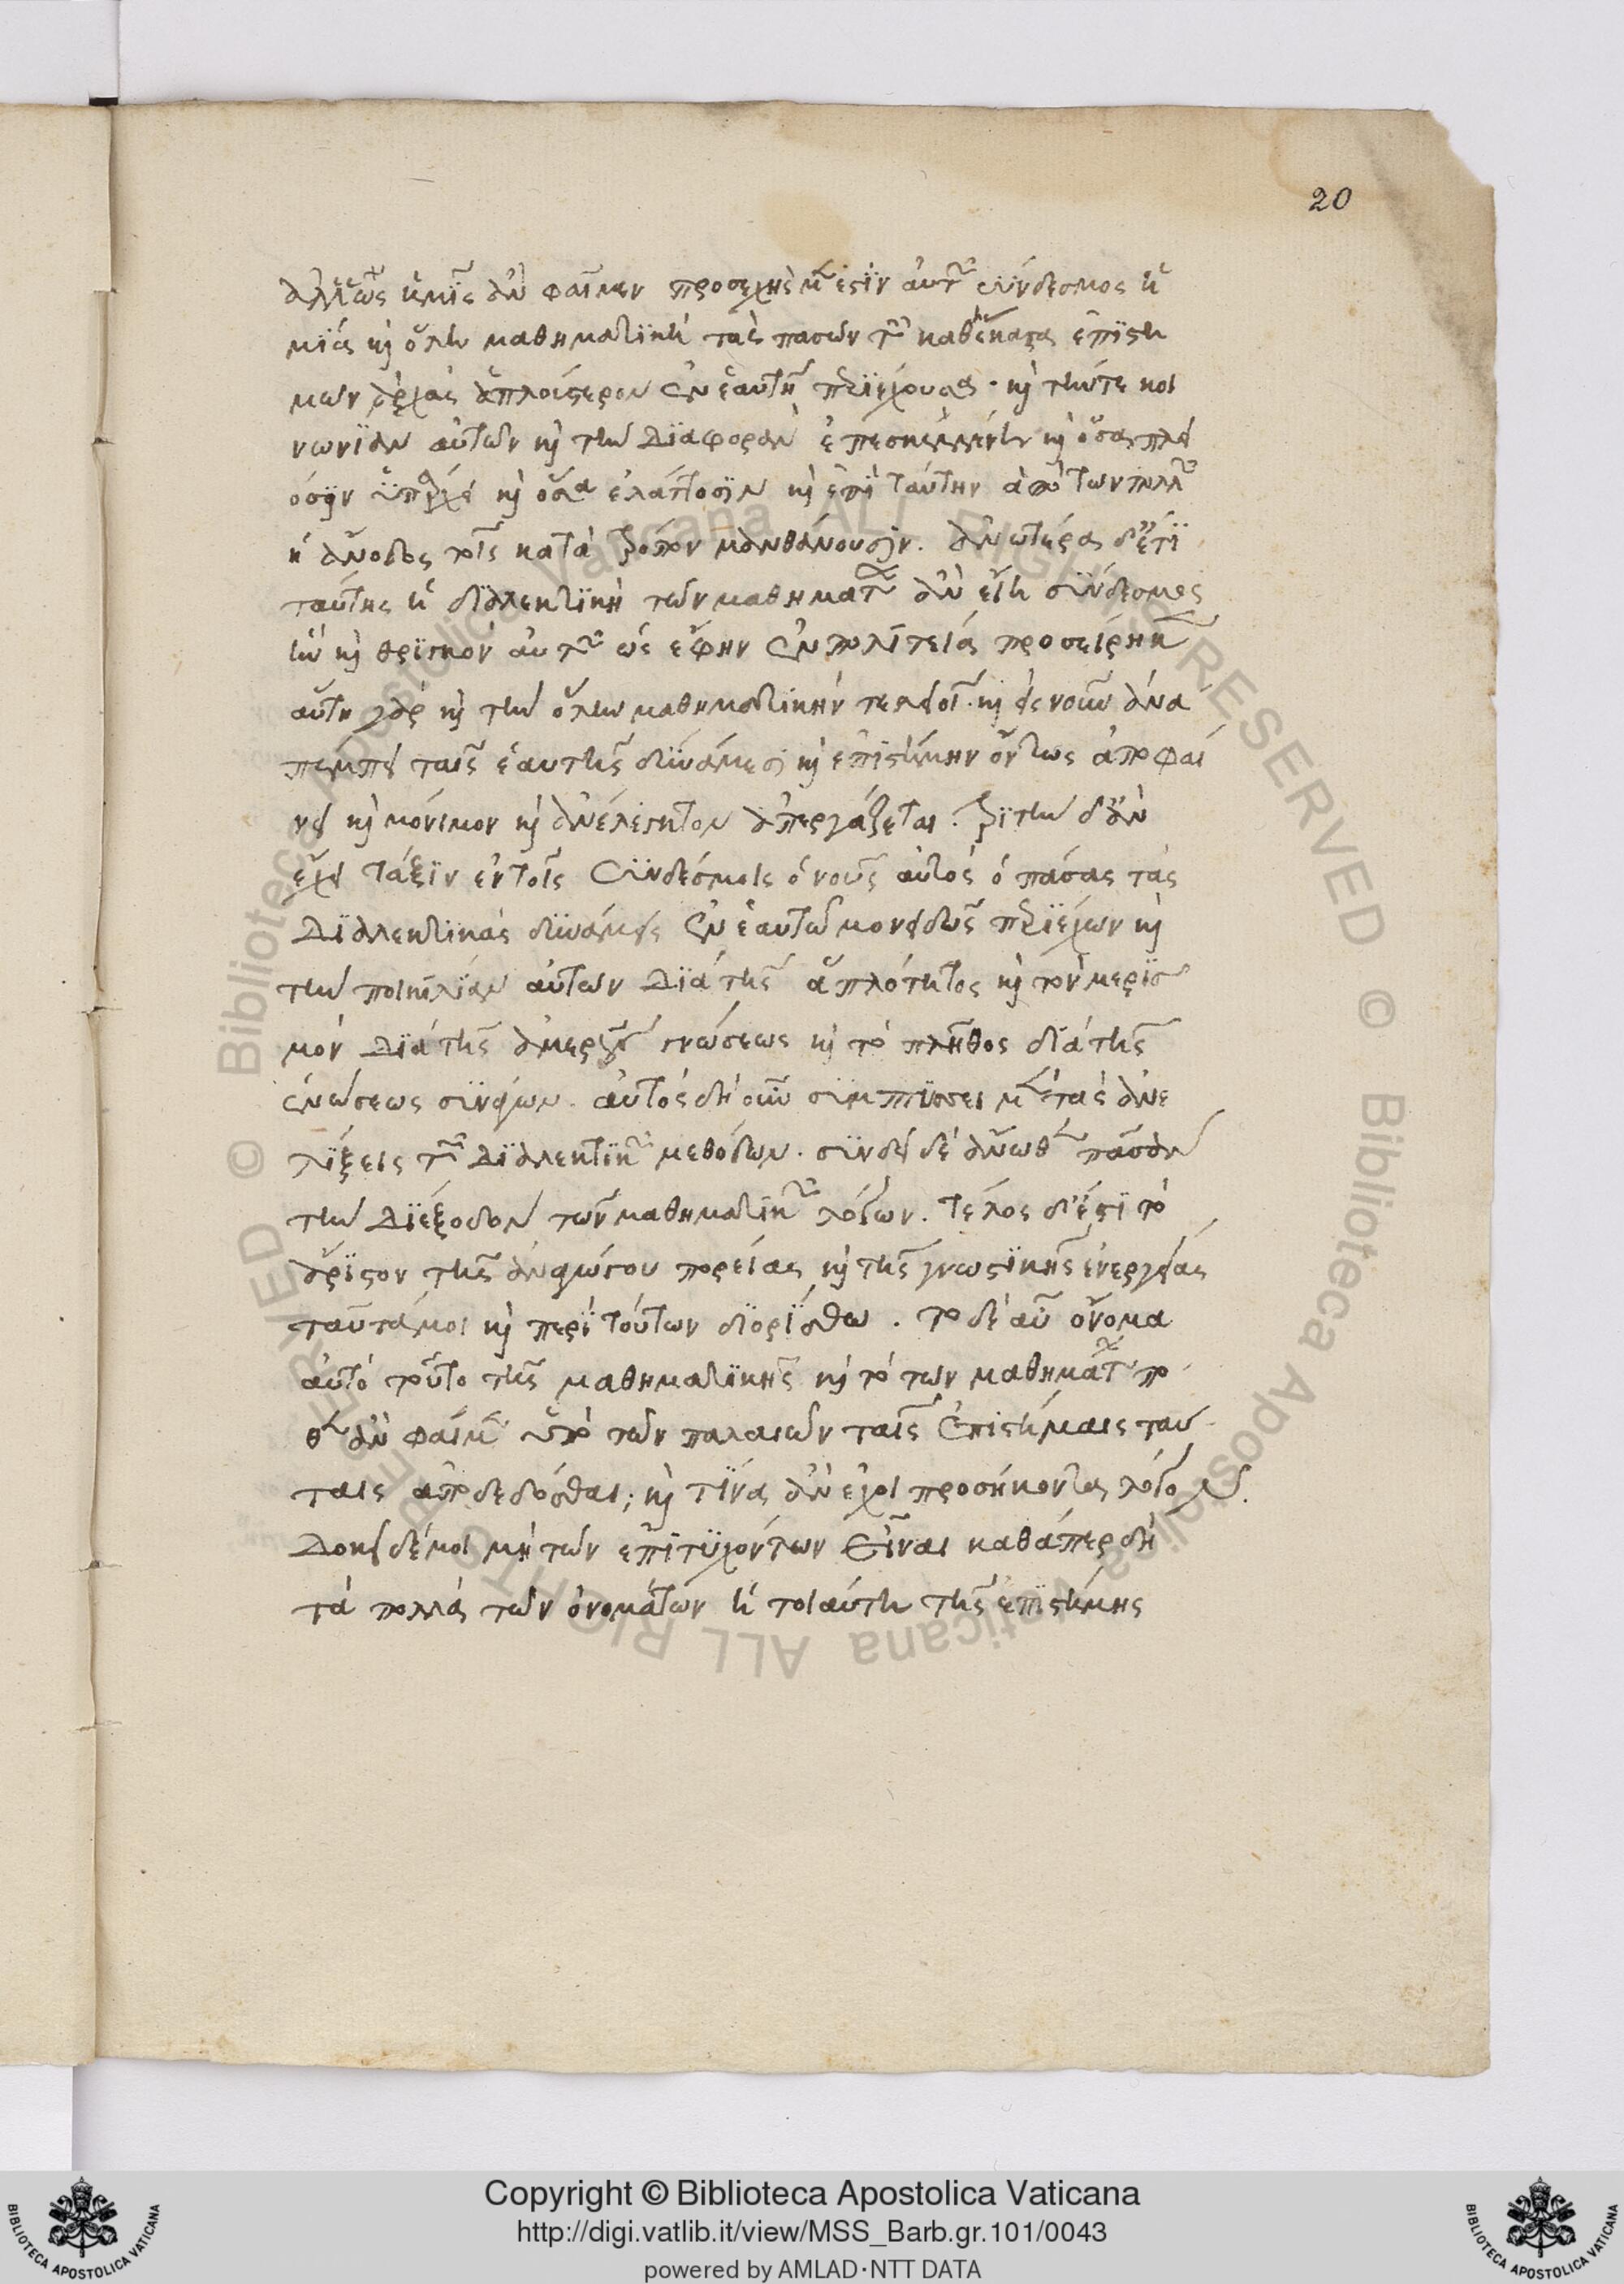 20
ἀλλ' ὡς ἡμεῖς ἂν φαῖμεν προσεχὴς μὲν ἐστὶν αὐτῶν σύνδεσμος ἡ
μία καὶ ὅλη μαθηματικὴ τὰς πασῶν τῶν καθέκαστα ἐπιστη
μῶν ἀρχὰς ἁπλούστερον ἐν ἑαυτῇ περιέχουσα· καὶ τήν τε κοι
νωνίαν αὐτῶν καὶ τὴν διαφορὰν ἐπεσκεμμένη καὶ ὅσα πλεί
οσιν ὑπάρχει καὶ ὅσα ἐλάττοσιν καὶ ἐπὶ ταύτην ἀπὸ τῶν πολλῶν
ἡ ἄνοδος τοῖς κατὰ τρόπον μανθάνουσιν. ἀνωτέρα δ' ἔτι
ταύτης ἡ διαλεκτικὴ τῶν μαθημάτων ἂν εἴη σύνδεσμος
ἣν καὶ θριγκὸν αὐτῶν ὡς ἔφην ἐν πολιτείᾳ προσείρηκεν
αὕτη γὰρ καὶ τὴν ὅλην μαθηματικὴν τελειοῖ· καὶ εἰς νοῦν ἀνα
πέμπει ταῖς ἑαυτῆς δυνάμεσι καὶ ἐπιστήμην ὄντως ἀποφαί
νει καὶ μόνιμον καὶ ἀνέλεγκτον ἀπεργάζεται. τρίτην δ' ἂν
ἔχοι τάξιν ἐν τοῖς συνδέσμοις ὁ νοῦς αὐτὸς ὁ πάσας τὰς
διαλεκτικὰς δυνάμεις ἐν ἑαυτῷ μονοειδῶς περιέχων καὶ
τὴν ποικιλίαν αὐτῶν διὰ τῆς ἁπλότητος καὶ τὸν μερισ
μὸν διὰ τῆς ἀμερίστου γνώσεως καὶ τὸ πλῆθος διὰ τῆς
ἑνώσεως συνάγων. αὐτὸς δὴ οὖν συμπτύσσει μὲν τὰς ἀνε
λίξεις τῶν διαλεκτικῶν μεθόδων. συνδεῖ δὲ ἄνωθεν πᾶσαν
τὴν διέξοδον τῶν μαθηματικῶν λόγων. τέλος δ' ἐστὶ τὸ
ἄριστον τῆς ἀναγώγου πορείας καὶ τῆς γνωστικῆς ἐνεργείας
ταῦτά μοι καὶ περὶ τούτων διορίσθω. τὸ δὲ αὖ ὄνομα
αὐτὸ τοῦτο τῆς μαθηματικῆς καὶ τὸ τῶν μαθημάτων πό
θεν ἂν φαῖμεν ὑπὸ τῶν παλαιῶν ταῖς ἐπιστήμαις ταύ
ταις ἀποδεδόσθαι; καὶ τίνα ἂν ἔχοι προσήκοντα λόγον.
Δοκεῖ δέ μοι μὴ τῶν ἐπιτυχόντων εἶναι καθάπερ δὴ
τὰ πολλὰ τῶν ὀνομάτων ἡ τοιαύτη τῆς ἐπιστήμης
© Biblioteca Apostolica Vaticana ALL RIGHTS RESERVED © Biblioteca Apostolica Vaticana ALL RIGHTS RESERVED
BIBLIOTECA APOSTOLICA VATICANA
Copyright © Biblioteca Apostolica Vaticana
http://digi.vatlib.it/view/MSS_Barb.gr.101/0043
powered by AMLAD·NTT DATA
BIBLIOTECA APOSTOLICA VATICANA